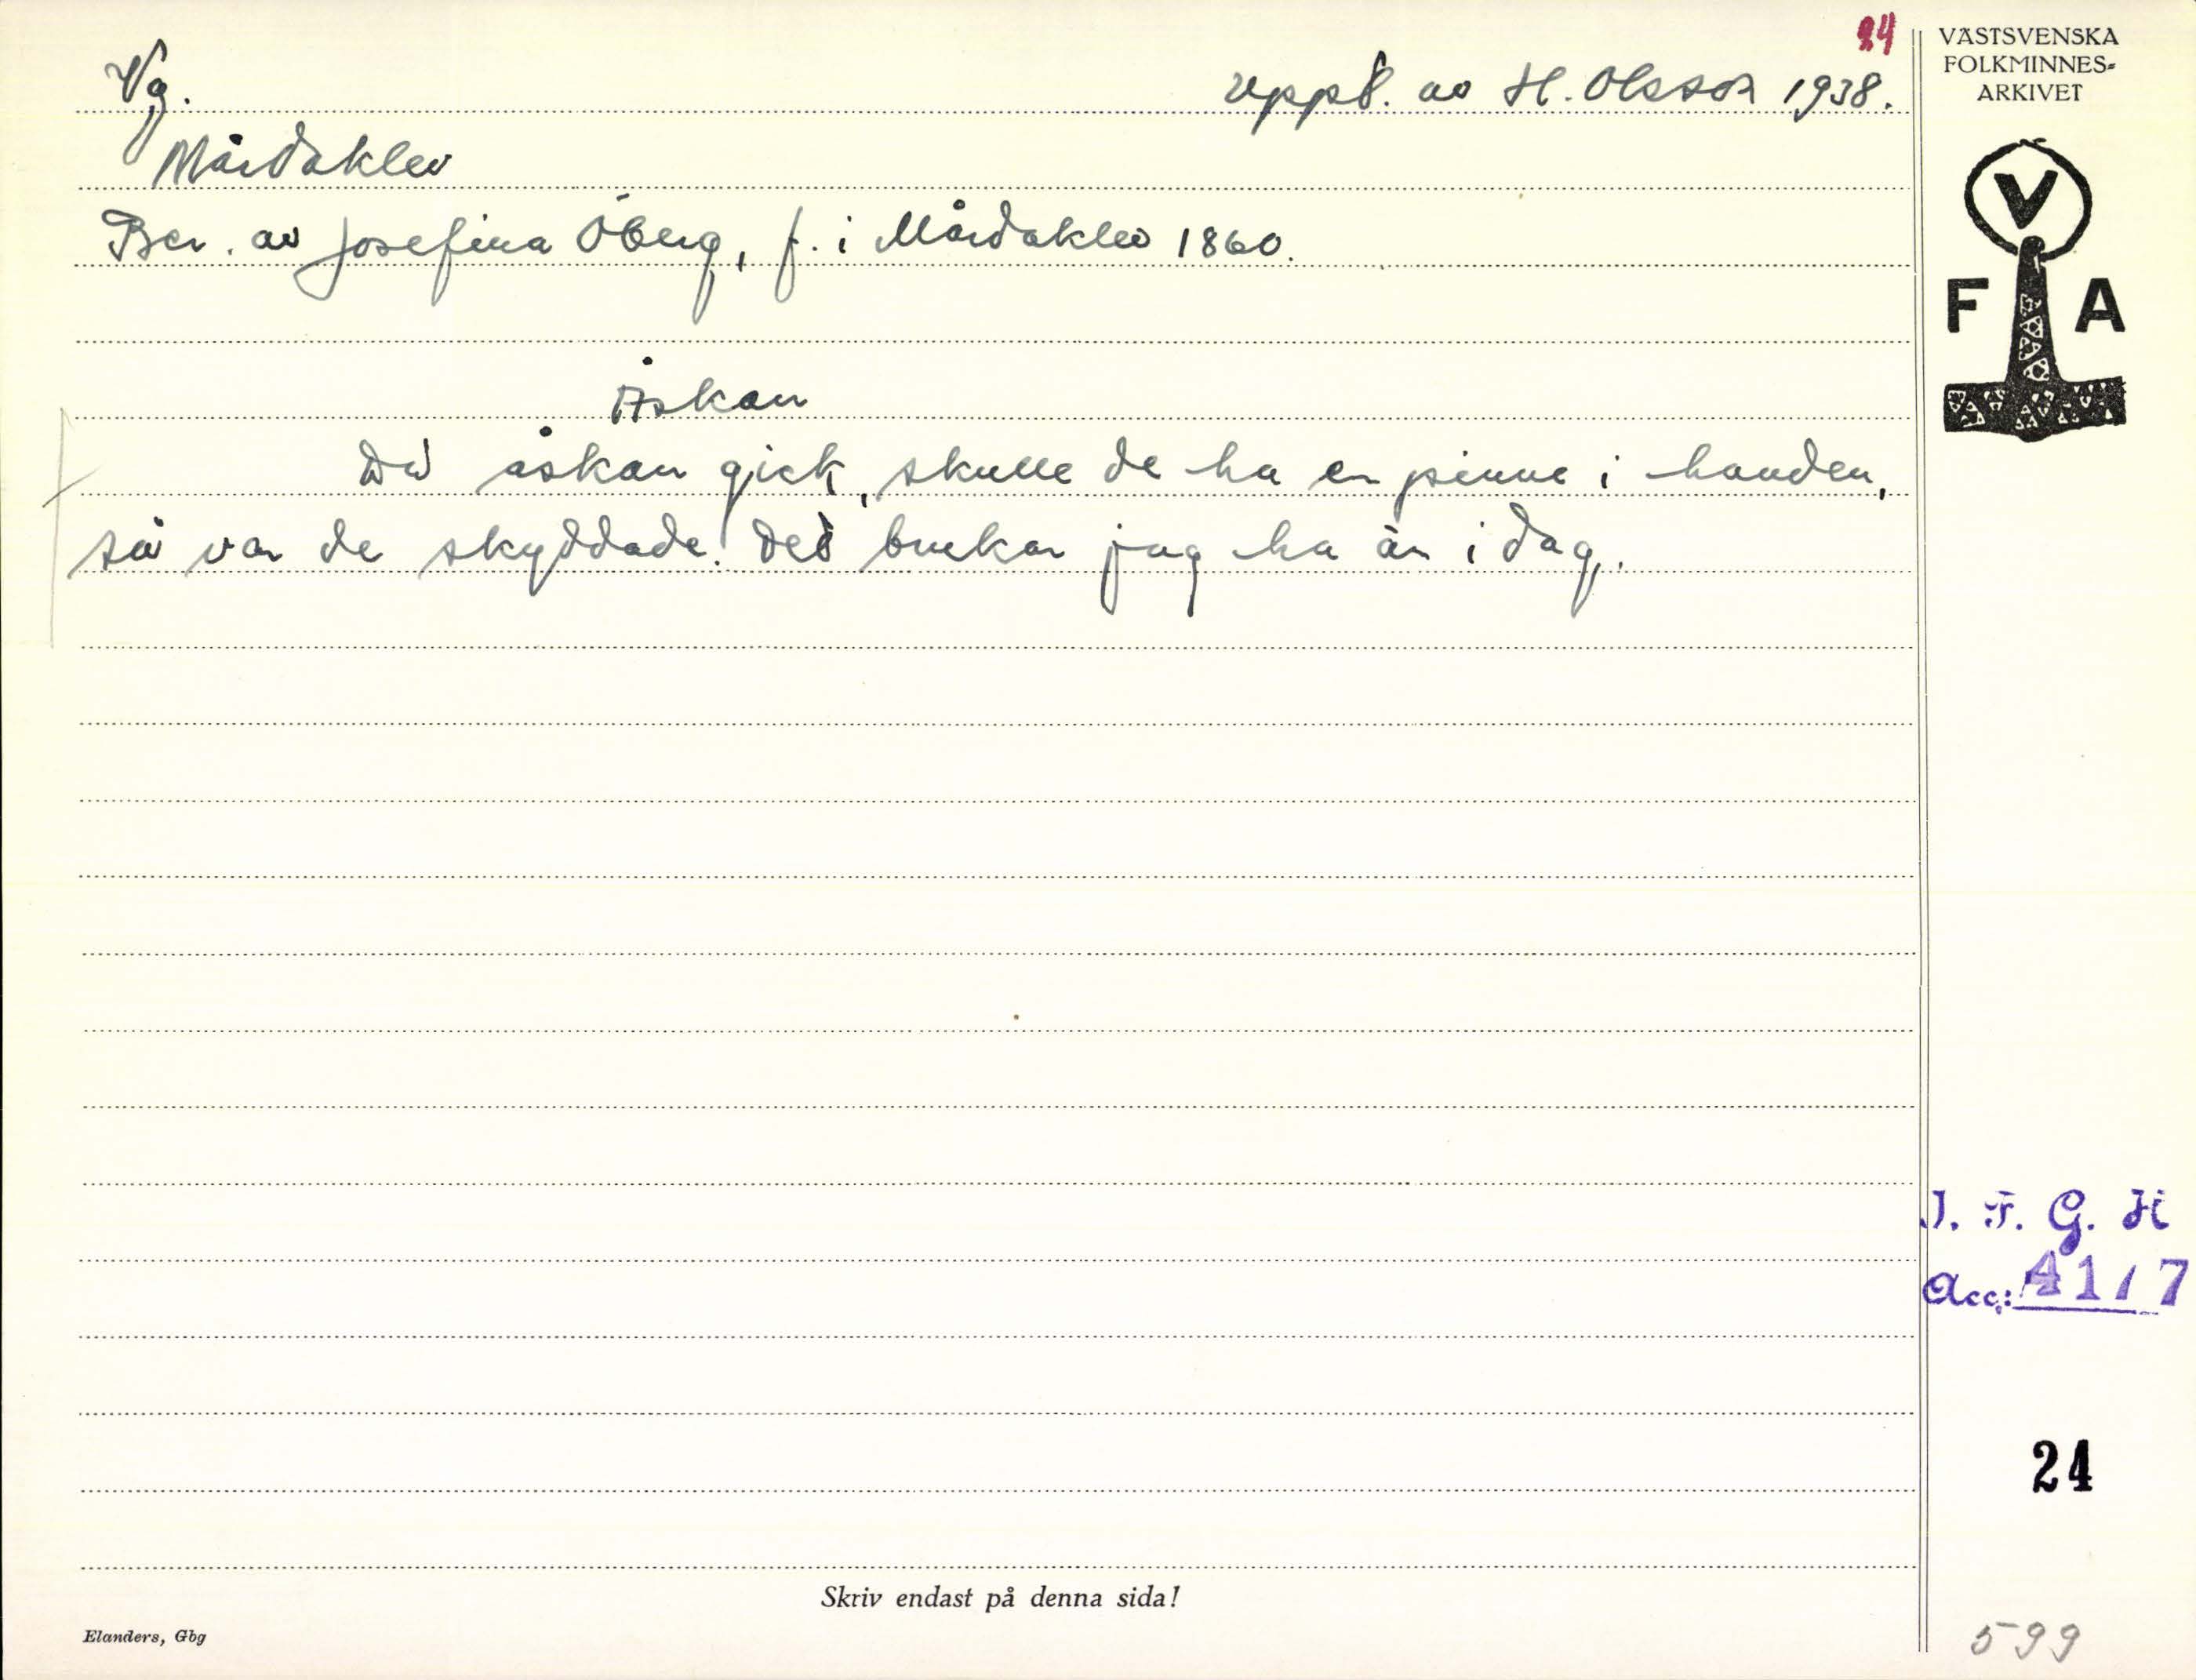 24
Vg.
Uppt. av H. Olsson 1938.
Mårdaklev
Ber. av Josefina Öberg, f. i Mårdaklev 1860.
Åskan
Då åskan gick, skulle de ha en pinne i handen,
så var de skyddade. Det brukar jag ha än i dag.
VÄSTSVENSKA
FOLKMINNES-
ARKIVET
V
F A
I. F. G. H
Acc:
24
599
Skriv endast på denna sida!
Elanders, Gbg